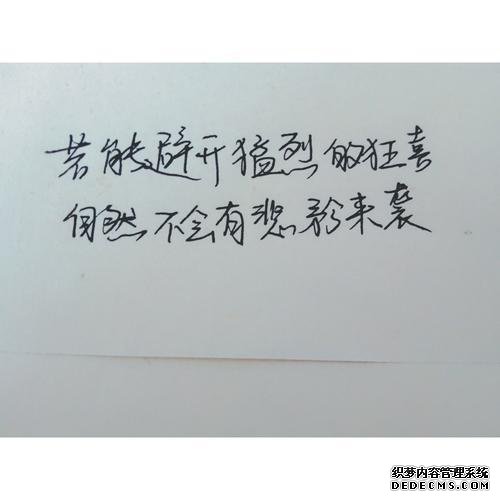 若能避开猛烈的狂喜
自然不会有悲来袭
织梦内容管理系统
DEDECMS.COM